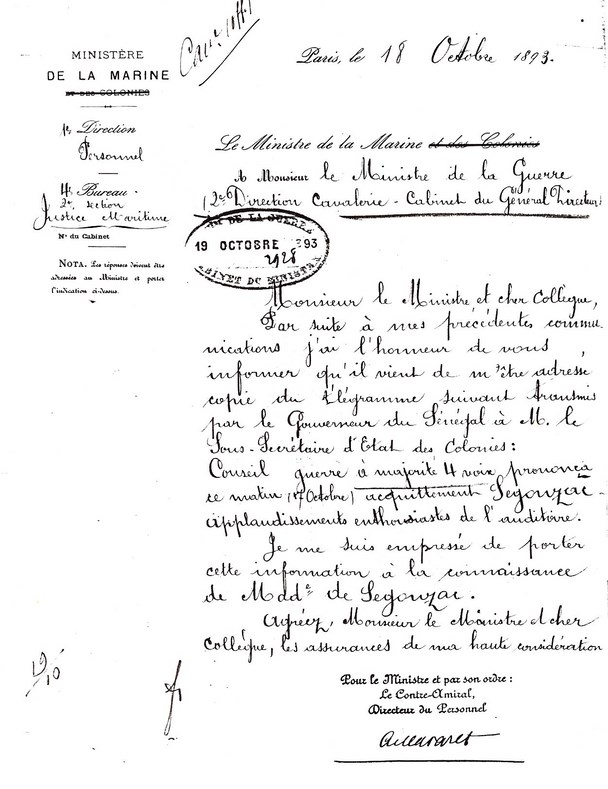 MINISTÈRE
DE LA MARINE
ET DES COLONIES
Paris, le 18 Octobre 1893.
1re Direction
Personnel
4e Bureau
2e section
Justice Maritime
No du Cabinet
NOTA. Les réponses doivent être
adressées au Ministre et porter
l'indication ci-dessus.
Le Ministre de la Marine et des Colonies
A Monsieur le Ministre de la Guerre
(2e Direction Cavalerie - Cabinet du Général Directeur)
DE LA GUERRE
19 OCTOBRE 93
2928
CABINET DU MINISTRE
Monsieur le Ministre et cher Collègue,
Par suite à mes précédentes commu
nications j'ai l'honneur de vous
informer qu'il vient de m'être adressé
copie du télégramme suivant transmis
par le Gouverneur du Sénégal à M. le
Sous-Secrétaire d'Etat des Colonies :
Conseil guerre à majorité 4 voix prononça
ce matin (17 Octobre) acquittement Segonzac -
applaudissements enthousiastes de l'auditoire.
Je me suis empressé de porter
cette information à la connaissance
de Madde de Segonzac.
Agréez, Monsieur le Ministre et cher
Collègue, les assurances de ma haute considération
Pour le Ministre et par son ordre :
Le Contre-Amiral,
Directeur du Personnel
19/10